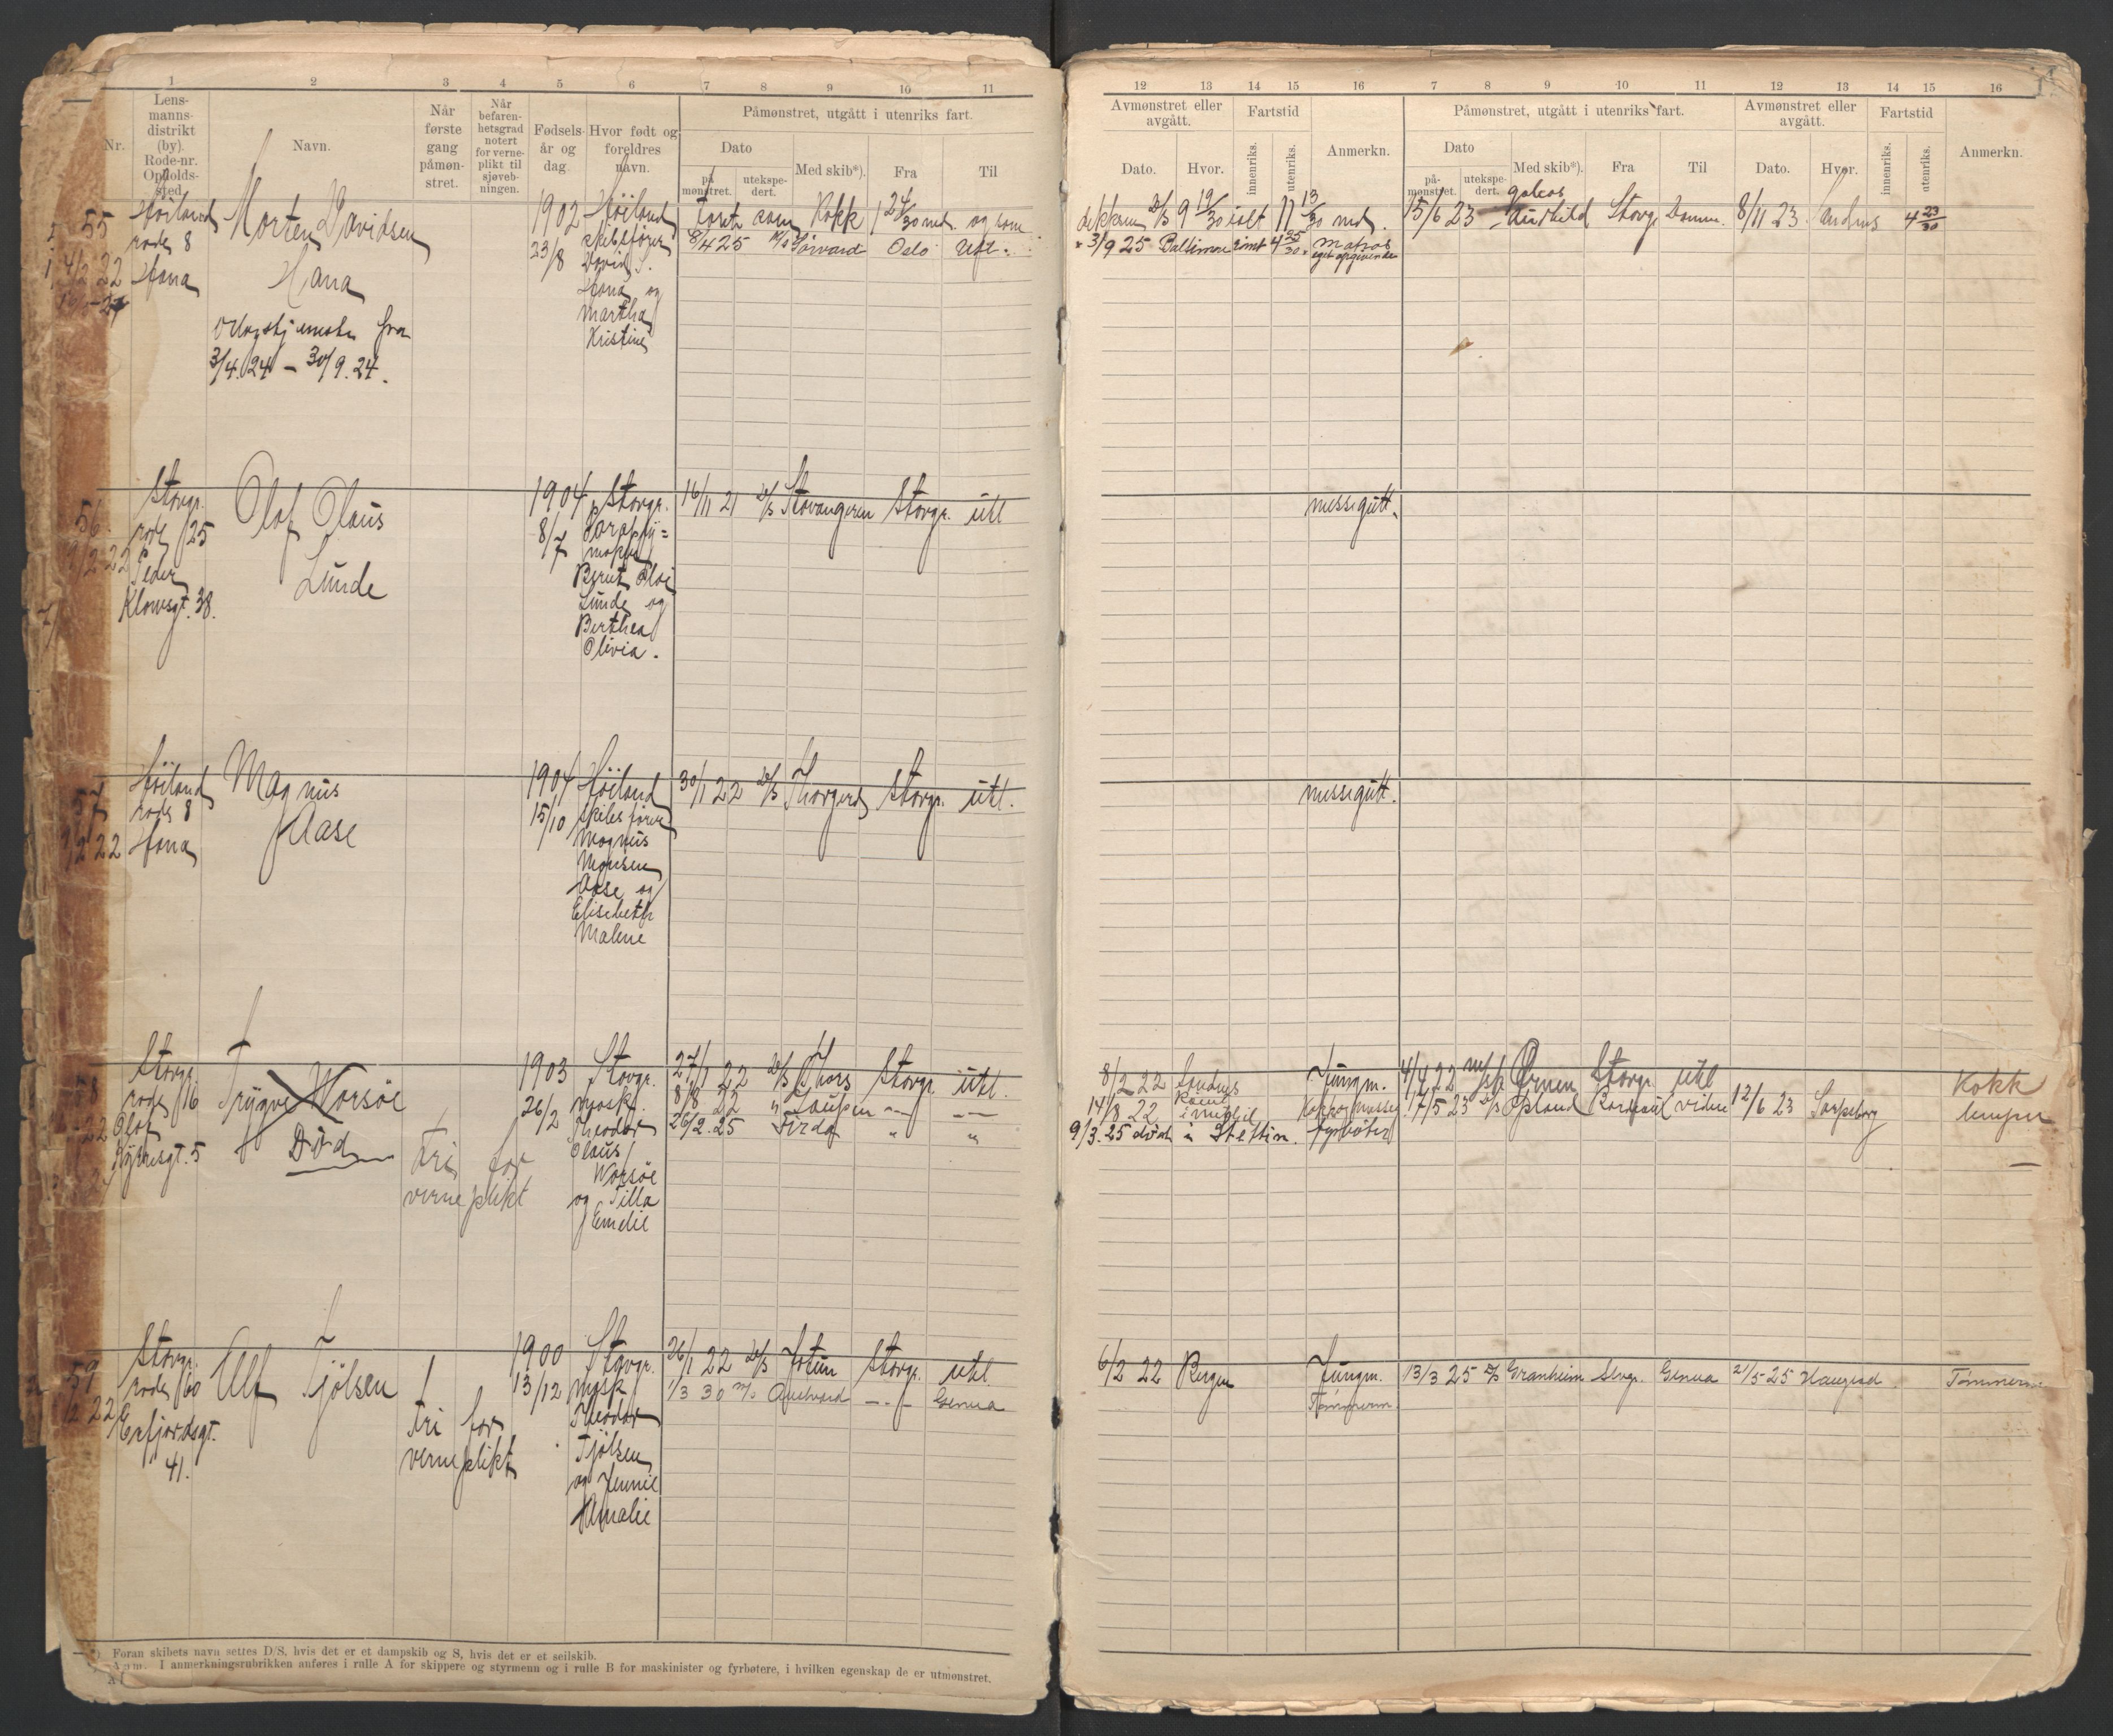 1 2 3 4 5 6 7 8 9 10 11
Nr.
Lens-
manns-
distrikt
(by).
Rode-nr.
Opholds-
sted
Navn.
Når
første
gang
påmøn-
stret.
Når
befaren-
hetsgrad
notert
for verne-
plikt til
sjøveb-
ningen.
Fødsels-
år og
dag.
Hvor født og
foreldres
navn.
Påmønstret, utgått i utenriks fart.
Dato
på
mønstret.
utekspe-
dert.
Med skib*).
Fra
Til
55
Høiland
rode 8
Hana
Morten Davidsen
Hana
fra
3/4.24 – 30/9.24.
1902
23/8
Høiland
skibsfører
David S.
Hana og
Martha
Kristine
faret som Kokk 1 24/30 md. og som
8/4 25 M/S Oslo Utl.
56.
9/2 22
Stavgr.
rode 25
Peder
Klowsgt. 38.
Olaf Olaus
Lunde
1904
8/7
Stavgr.
Bernt Olai
Lunde og
Berthea
Olivia.
16/11 21 D/S Stavangeren Stavgr. utl
57
9/2 22
Høiland
rode 8
Hana
Magnus
Aase
1904
15/10
Høiland
Skibsfører
Magnus
Monsen
Aase og
Elisabeth
Malene
30/1 22 D/S Thorgerd Stavgr. utl.
58
22
Stavgr.
rode 16
Olaf
Kyrresgt. 5
Trygve Worsøe
Død
Fri for
verneplikt
1903
26/2
Stavgr.
Mask.
Theodor
Olaus
Worsøe
og Tilla
Emelie
27/1 22 D/S Thors Stavgr. utl.
8/8 22 " Gaupen –"– –"–
26/2.25 Firda " "
59
22
Stavgr.
rode 60
Erfjordsgt.
41.
Ulf Tjølsen
Fri for
verneplikt
1900
13/12
Stavgr.
Mask
Theodor
Tjølsen
og Jennie
Amalie
26/1 22 D/S Jotun Stavgr. utl.
1/3 30 M/S –"– Genua
Foran skibets navn settes D/S, hvis det er et dampskib og S, hvis det er et seilskib.
Anm. I anmerkningsrubrikken anføres i rulle A for skippere og styrmenn og i rulle B for maskinister og fyrbøtere, i hvilken egenskap de er utmønstret.
12 13 14 15 16 7 8 9 10 11 12 13 14 15 16
Avmønstret eller
avgått.
Dato.
Hvor.
Fartstid
innenriks.
utenriks.
Anmerkn.
Påmønstret, utgått i utenriks fart.
Dato
på-
mønstret.
utekspe-
dert.
Med skib*).
Fra
Til
Avmønstret eller
avgått.
Dato.
Hvor.
Fartstid
innenriks.
utenriks.
Anmerkn.
dekksm D/S 9 19/30 ialt 11 13/30 md. 15/6 23 galeas Audhild Stavgr Danm. 8/11 23 Sandnes 4 23/30
3/9 25 Baltimore 4 25/30. Matros
eget opgivende
messegutt.
messegutt.
8/2 22 Sandnes Jungm. 4/4 22 M/Sk Ørnen Stavgr. utl
14/8 22 17/5 23 D/S Opland 12/6 23 Sarpsborg Kokk
lemper
9/3.25 død i Stettin. fyrbøter
6/2 22 Bergen Jungm. 13/3 25 D/S Granheim Stvgr. Genua 21/5-25 Haugesd. Tømmerm.
Tømmerm.